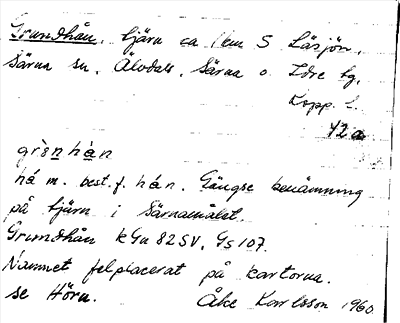 Grundhån, tjärn ca 1 km S Läsjön,
Särna sn, Älvdals, Särna o. Idre tg,
Kopp. l.
42a
grènhàn
há m. best. f. hán. Gängse benämning
på tjärn i Särnamålet.
Grundhån kGu 82SV, Gs 107.
Namnet felplacerat på kartorna.
se Hörn. Åke Karlsson 1960